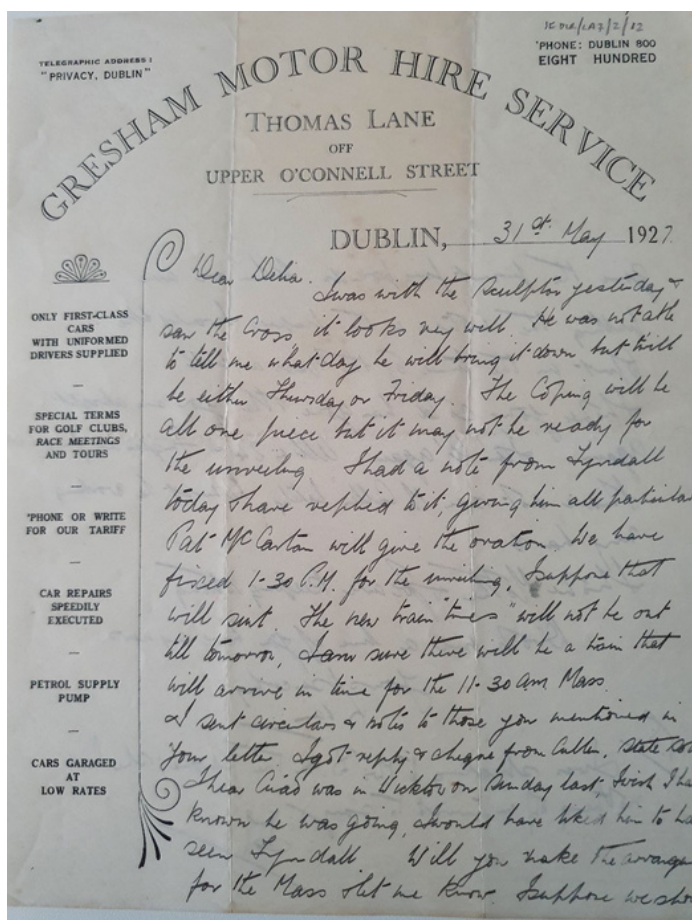 TELEGRAPHIC ADDRESS:
"PRIVACY, DUBLIN"
'PHONE: DUBLIN 800
EIGHT HUNDRED
GRESHAM MOTOR HIRE SERVICE
THOMAS LANE
OFF
UPPER O'CONNELL STREET
DUBLIN, 31st May 1927
ONLY FIRST-CLASS
CARS
WITH UNIFORMED
DRIVERS SUPPLIED
SPECIAL TERMS
FOR GOLF CLUBS,
RACE MEETINGS
AND TOURS
'PHONE OR WRITE
FOR OUR TARIFF
CAR REPAIRS
SPEEDILY
EXECUTED
PETROL SUPPLY
PUMP
CARS GARAGED
AT
LOW RATES
Dear Delia.
I was with the sculptor yesterday &
saw the Cross it looks very well. He was not able
to tell me what day he will bring it down but will
be either Thursday or Friday. The Coping will be
all one piece but it may not be ready for
the unveiling I had a note from Lyndall
today I have replied to it, giving him all particular
Pat McCartan will give the oration We have
fixed 1-30 P.M. for the unveiling, I suppose that
will suit. The new train "times" will not be out
till tomorrow, I am sure there will be a train that
will arrive in time for the 11-30 am Mass.
I sent circulars & notes to those you mentioned in
your letter. I got reply & cheque from Cullen, State
I hear was in on Sunday last, I wish I ha
known he was going, I would have liked him to ha
seen Lyndall Will you make the arrange
for the Mass & let me know. I suppose we sho